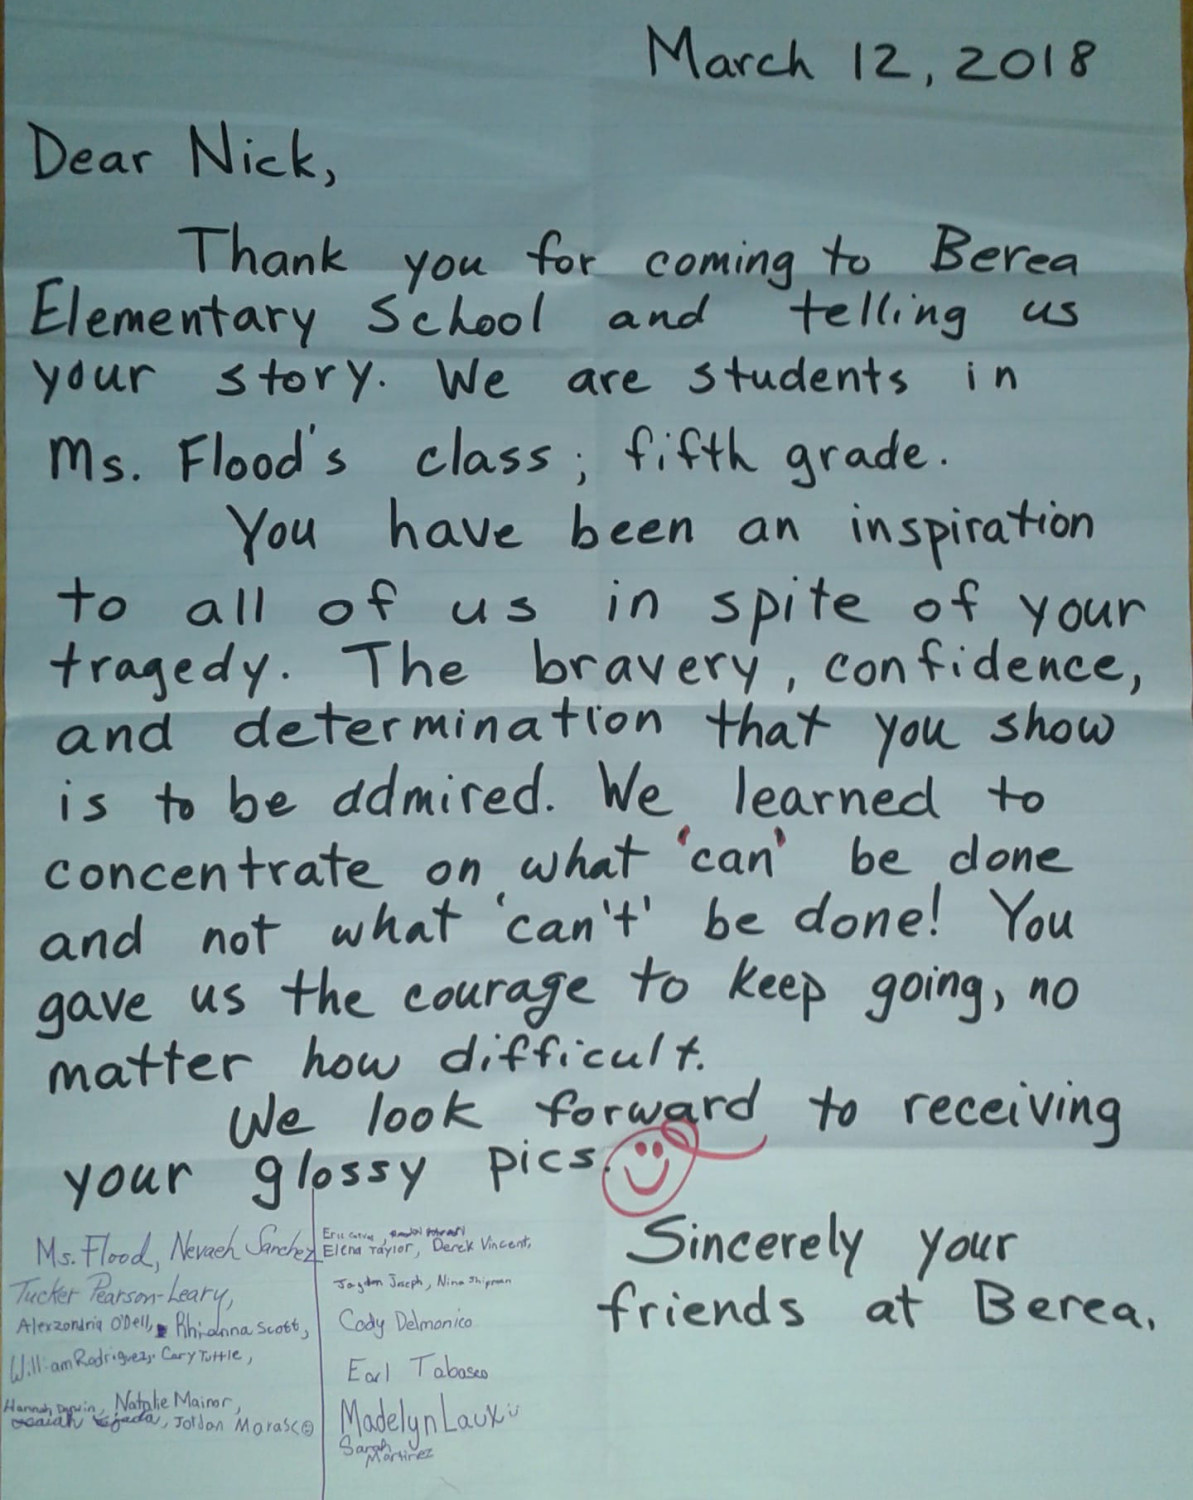 March 12, 2018
Dear Nick,
Thank you for coming to Berea
Elementary School and telling us
your story. We are students in
Ms. Flood's class; fifth grade.
You have been an inspiration
to all of us in spite of your
tragedy. The bravery, confidence,
and determination that you show
is to be admired. We learned to
concentrate on what 'can' be done
and not what 'can't' be done! You
gave us the courage to keep going, no
matter how difficult.
We look forward to receiving
your glossy pics.
Sincerely your
friends at Berea.
Ms. Flood, Nevaeh Sanchez
Tucker Pearson-Leary,
Alexzondria O'Dell, Rhianna Scott,
William Rodriguez, Cary Tuttle,
Hannah, Natalie Mainor,
Jordan Marasco
Elena Taylor, Derek Vincent,
Jayden Joseph, Nina Shipman
Cody Delmonico
Earl Tabasco
Madelyn Laux
Sarah
Martinez